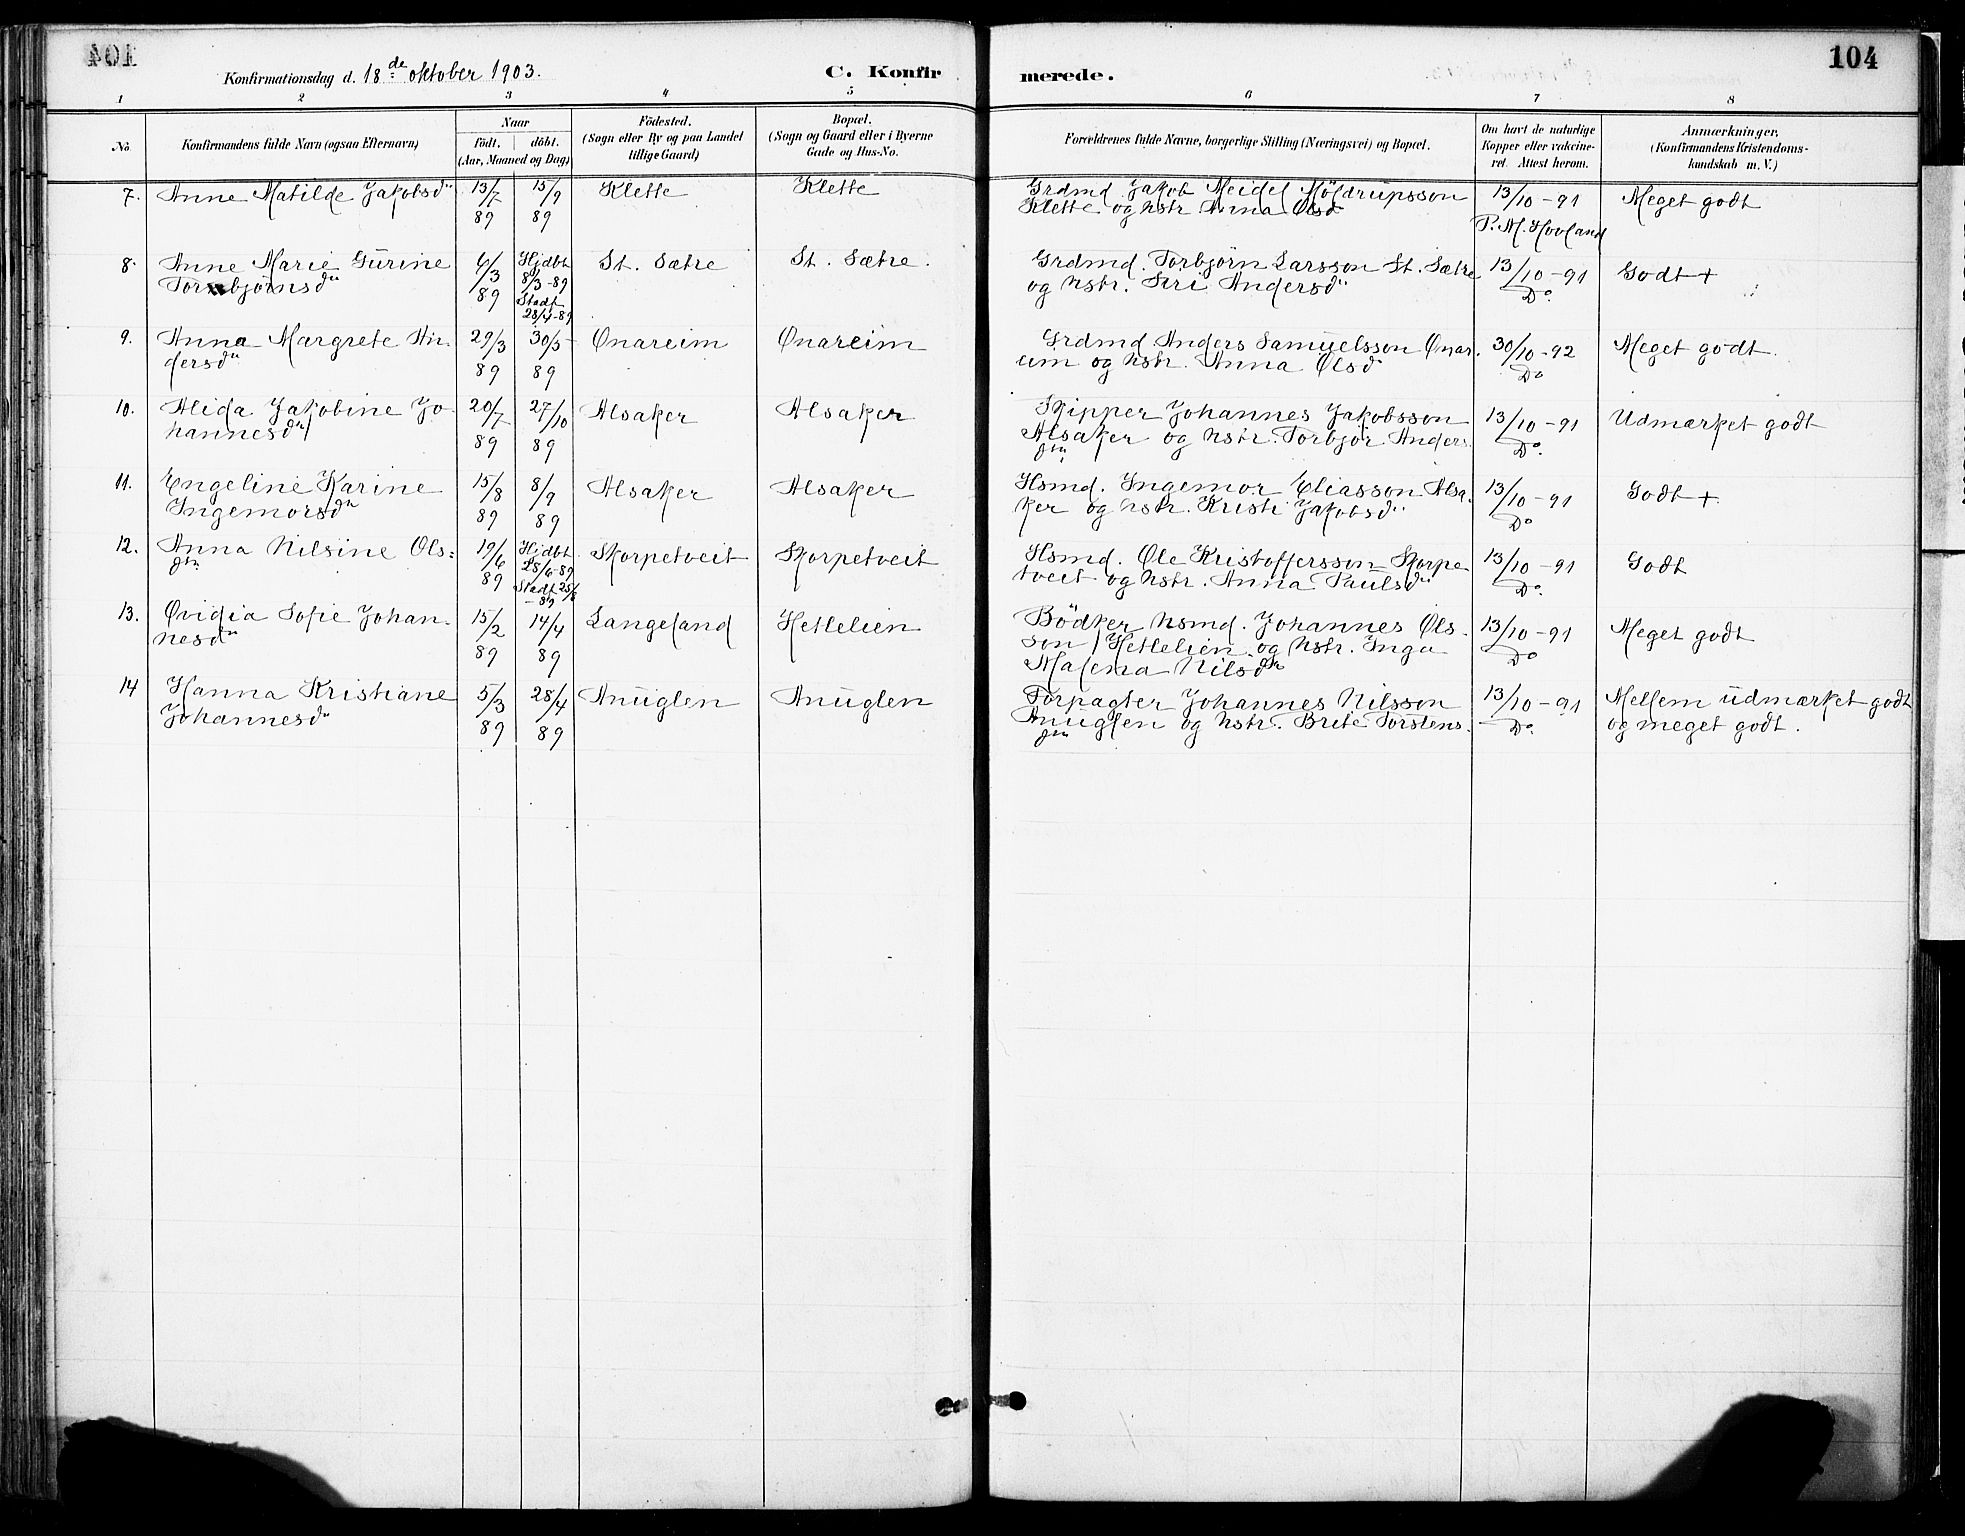 104
Konfirmationsdag d. 18de oktober 1903.
C. Konfirmerede.
104
1 2 3 4 5 6 7 8
No.
Konfirmandens fulde Navn (ogsaa Efternavn)
Naar
födt. döbt.
(Aar, Maaned og Dag)
Födested.
(Sogn eller By og paa Landet
tillige Gaard)
Bopæl.
(Sogn og Gaard eller i Byerne
Gade og Hus-No.
Forældrenes fulde Navne, borgerlige Stilling (Næringsvei) og Bopæl.
Om havt de naturlige
Kopper eller vakcine-
ret. Attest herom.
Anmærkninger.
(Konfirmandens Kristendoms-
kundskab m. V.)
7. Anne Matilde Jakobsdtr 13/7 89 15/9 89 Klette Klette Grdmd. Jakob Meidel Möldrupsson 13/10-91 Meget godt
Klette og hstr. Anna Olsdtr P. M. Hovland
8. Anne Marie Gurine 6/3 89 Hjdbt 8/3-89 St. Sætre St. Sætre. Grdmd. Torbjörn Larsson St. Sætre 13/10-91 Godt +
Torbjørnsdtr Stadf 28/4-89 og hstr. Siri Andersdtr Do.
9. Anna Margrete An- 29/3 89 30/5 89 Onareim Onareim Grdmd Anders Samuelsson Onar- 30/10-92 Meget godt.
dersdtr eim og hstr. Anna Olsdtr Do
10. Alida Jakobine Jo- 20/7 89 27/10 89 Alsaker Alsaker Skipper Johannes Jakobsson 13/10-91 Udmærket godt
hannesdtr Alsaker og hstr. Torbjør Anders-
dtr Do.
11. Engeline Karine 15/8 89 8/9 89 Alsaker Alsaker Hsmd. Ingemor Eliasson Alsa- 13/10-91 Godt +
Ingemorsdtr ker og hstr. Kristi Jakobsdtr Do
12. Anna Nilsine Ols- 19/6 89 Hjdbt 28/6-89 Skorpetveit Skorpetveit Hsmd. Ole Kristoffersson Skorpe- 13/10-91 Godt
dtr Stadf 25/8-89 tveit og hstr. Anna Paulsdtr Do.
13. Ovidia Sofie Johan- 15/2 89 14/4 89 Langeland Hetlelien Bödker hsmd. Johannes Ols- 13/10-91 Meget godt
nesdtr son Hetlelien og hstr. Inga Do
Malena Nilsdtr
14 Hanna Kristiane 5/3 89 28/4 89 Anuglen Anuglen Forpagter Johannes Nilsson 13/10-91 Mellem udmærket godt
Johannesdtr Anuglen og hstr. Brite Torstens- Do. og meget godt.
dtr